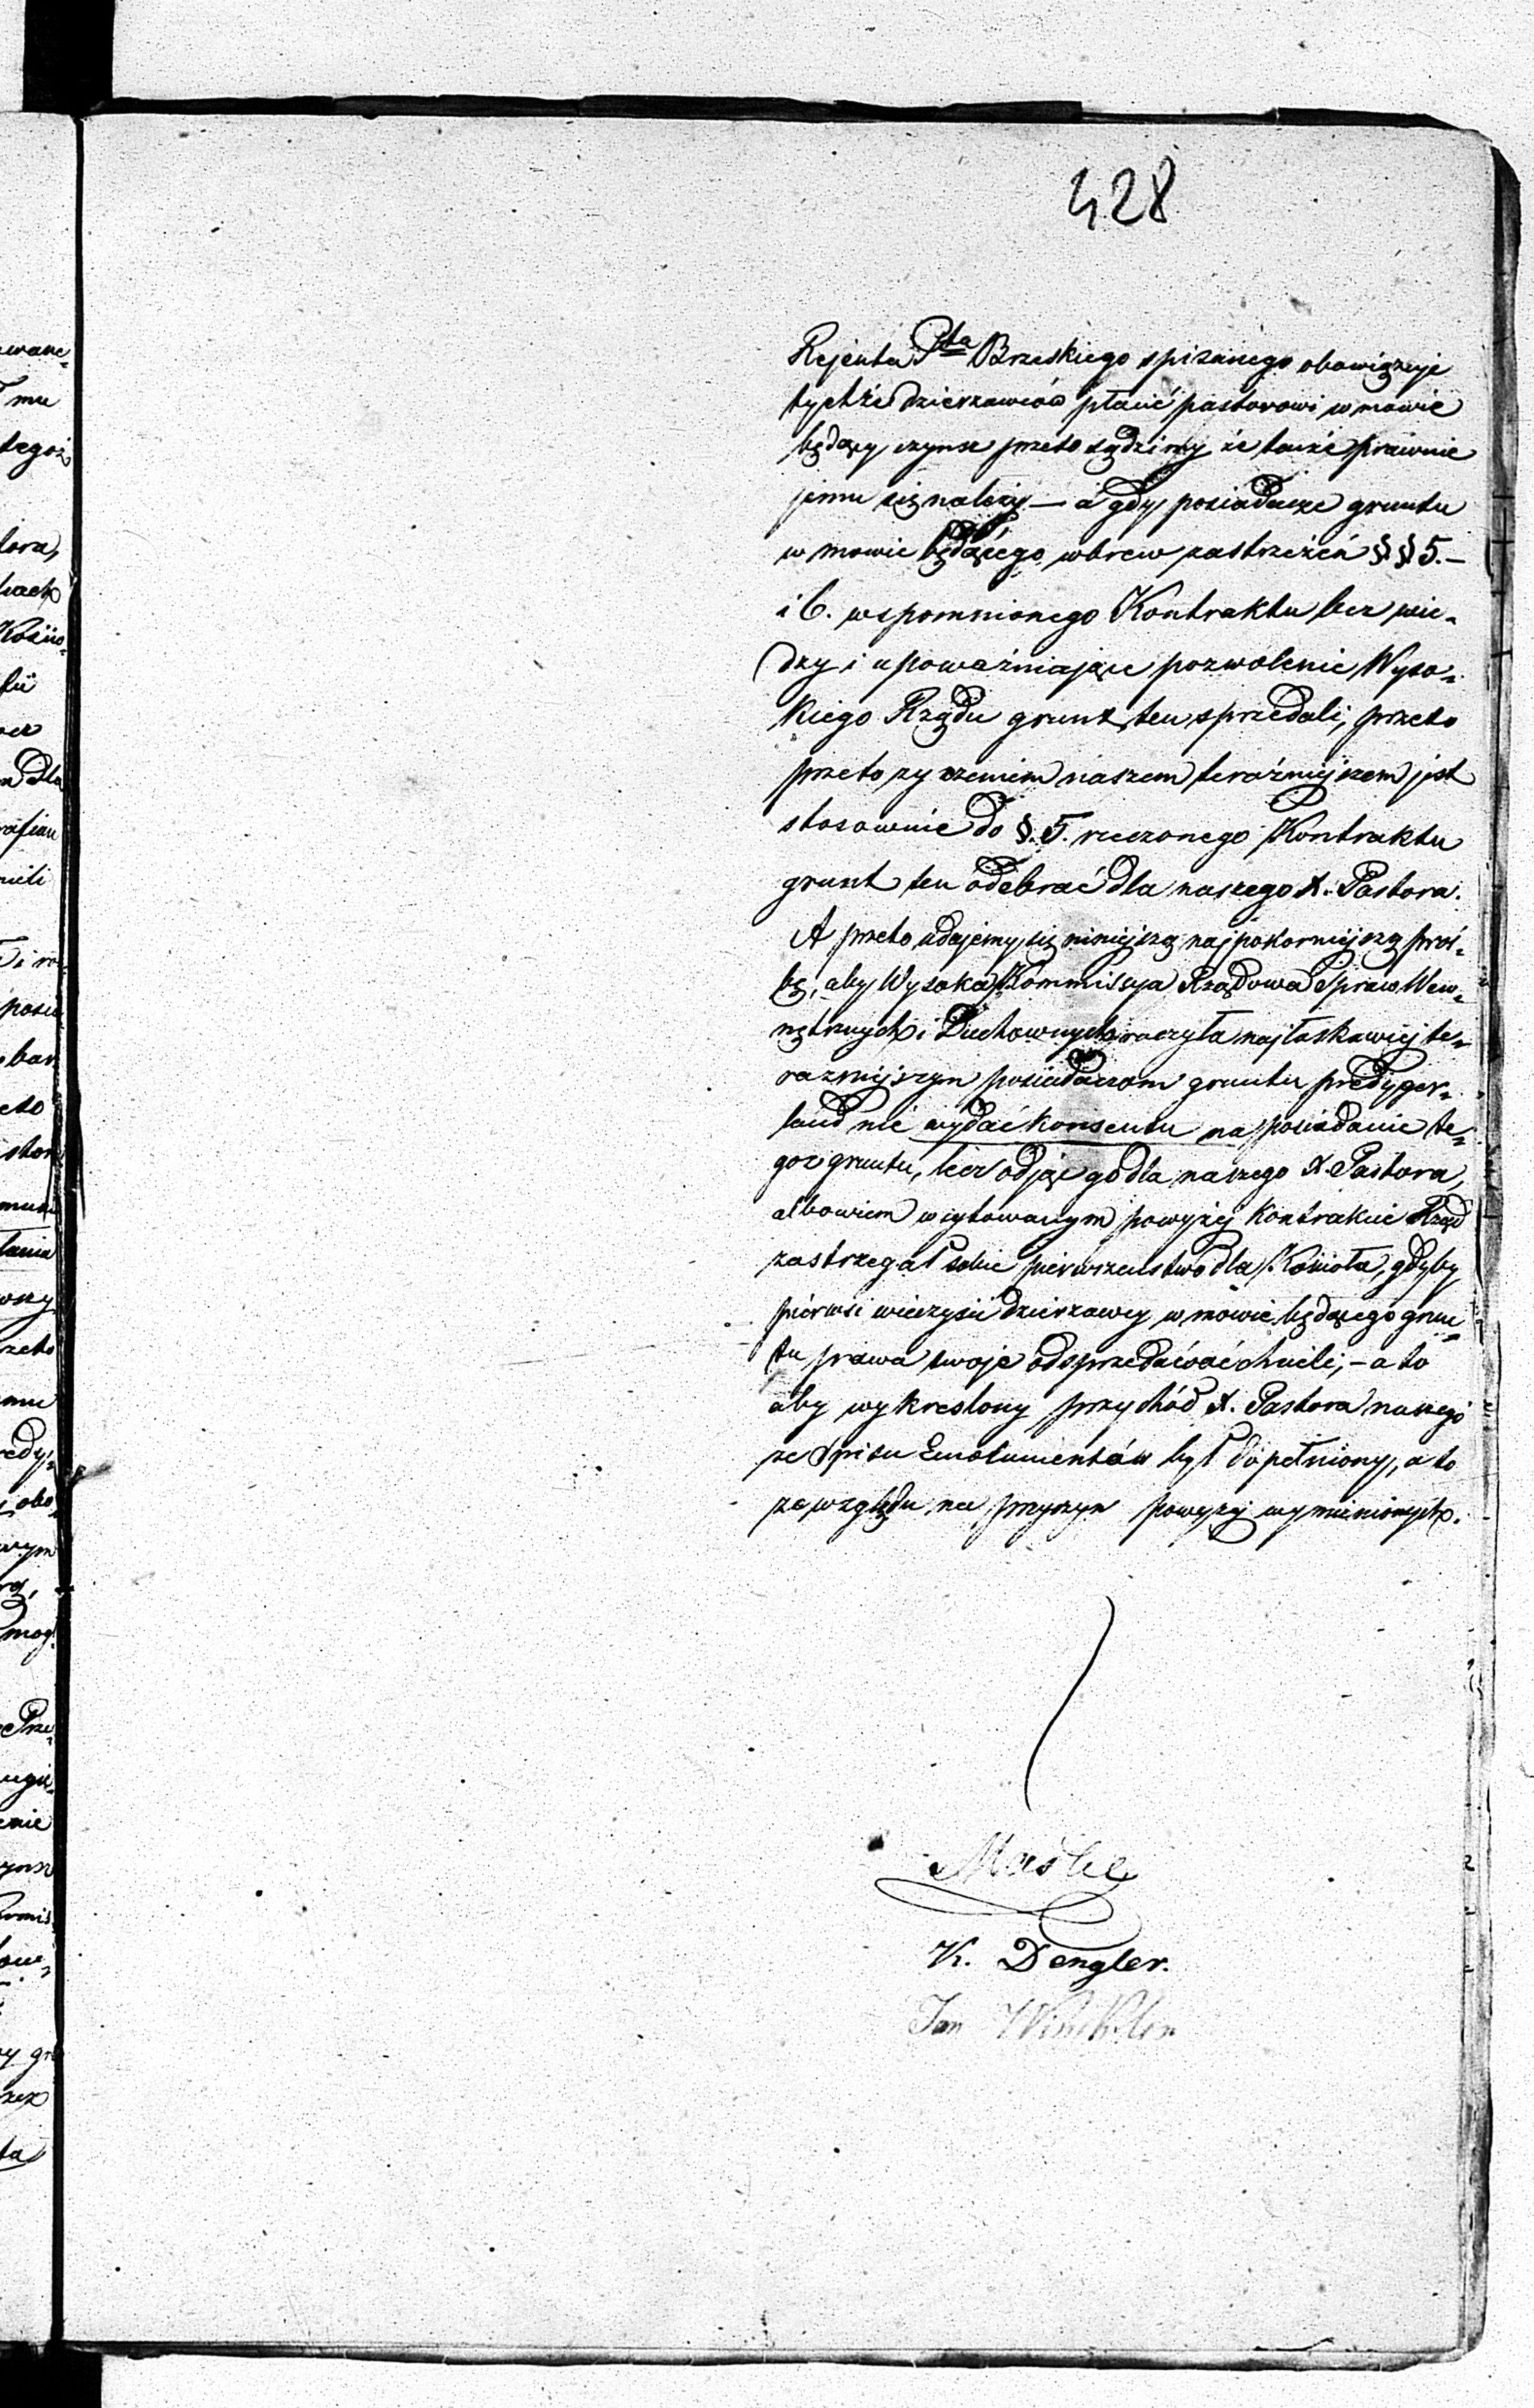 428
Rejenta Pta Brzeskiego spisanego obowiązuje
tychże dzierzawców płacić pastorowi w mowie
będący czynsz przeto sądzimy że tenże prawnie
jemu się należy — a gdy posiadacze gruntu
w mowie będącego wbrew zastrzeżeń §§ 5.–
i 6. wspomnionego Kontraktu bez wie-
dzy i upoważniające pozwolenie Wyso-
kiego Rządu grunt ten sprzedali, przeto
przeto zyczeniem naszem teraźniejszem jest
stosownie do §. 5. rzeczonego Kontraktu
grunt ten odebrać dla naszego X. Pastora.
A przeto udajemy się niniejszą najpokorniejszą proś-
bą, aby Wysoka Kommissya Rządowa Spraw Wew-
nętrznych i Duchownych raczyła najłaskawiej te-
razniejszym posiadaczom gruntu predyger-
land nie wydać konsensu na posiadanie te-
goz gruntu, lecz odjąć go dla naszego X. Pastora,
albowiem w cytowanym powyżej kontrakcie Rząd
zastrzegał sobie pierwszeństwo dla Kościoła, gdyby
piérwsi wieczyści dzierzawcy w mowie będącego grun
tu prawa swoje odsprzedawać chcieli, – a to
aby wykreslony przychód X. Pastora naszego
ze Spisu Emolumentów był dopełniony, a to
ze względu na przyczyn powyżej wymienionych.
K. Dengler.
Jan
wane-
mu
tegoż
tora,
Kościo-
dla
rafian
posia
eto
mu
zeto
redy-
obo-
wym
mog
Prze-
enie
gr
ta